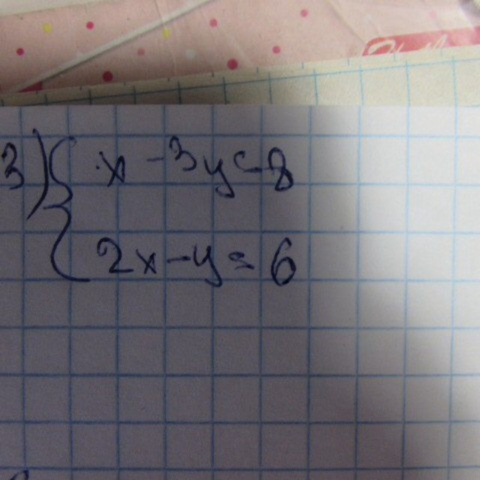 3) { x - 3y = 8
2x - y = 6